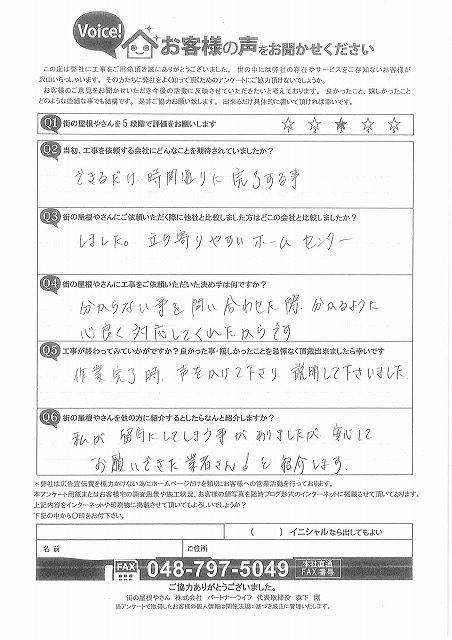 Voice!
お客様の声をお聞かせください
この度は弊社に工事をご用命頂き誠にありがとうございました。世の中には弊社の存在やサービスをご存知ないお客様が
沢山いらっしゃいます。その方たちに弊社をよく知って頂くためのアンケートにご協力頂けないでしょうか。
お客様のご意見をお聞かせいただき今後の活動に反映させていただきたいと考えております。良かったこと、嬉しかったこと
どのような些細な事でも結構です。是非ご協力お願い致します。出来るだけ具体的に書いて頂ければ幸いです。
Q1 街の屋根やさんを5段階で評価をお願いします ☆ ☆ ★ ☆ ☆
Q2 当初、工事を依頼する会社にどんなことを期待されていましたか?
できるだけ、時間通りに完了する事
Q3 街の屋根やさんにご依頼いただく際に他社と比較しました方はどこの会社と比較しましたか?
しました。立ち寄りやすいホームセンター
Q4 街の屋根やさんに工事をご依頼いただいた決め手は何ですか?
分からない事を問い合わせた際、分かるように
心良く対応してくれたからです
Q5 工事が終わってみていかがですか?良かった事・嬉しかったことを忌憚なく頂戴出来ましたら幸いです
作業完了時、声をかけて下さり、説明して下さいました。
Q6 街の屋根やさんを他の方に紹介するとしたらなんと紹介しますか?
私が留守にしてしまう事がありましたが、安心して
お願いできた業者さん!と紹介します。
*弊社は広告宣伝費を極力かけない為にホームページだけを頼りにお客様への営業活動を行っております。
本アンケート用紙またはお客様宅の調査風景や施工状況、お客様の顔写真を随時ブログ形式のインターネットに掲載させて頂いております。
上記内容をインターネットや印刷物に掲載させて頂いてもよろしいでしょうか?
下記の中から○印をお付下さい。
( )イニシャルなら出してもよい
名前 ご住所
FAX 048-797-5049 本社直通 FAX番号
ご協力ありがとうございました。
街の屋根やさん 株式会社 パートナーライフ 代表取締役 森下 剛
当アンケートで取得したお客様の個人情報は関係法規に基づき厳正に管理いたします。